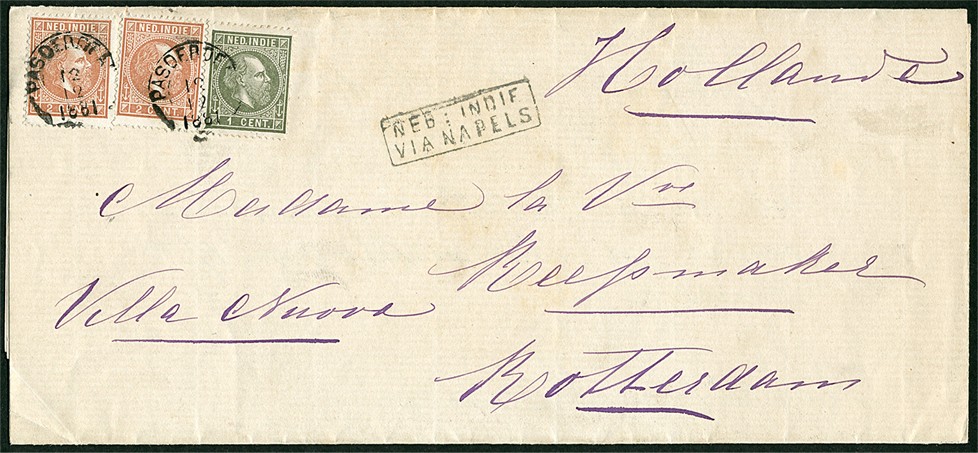 NED. INDIE
2 CENT.
NED. INDIE
2 CENT.
NED. INDIE
1 CENT.
PASOEROEAN
1881
PASOEROE
1881
NED: INDIE
VIA NAPELS
Hollande
Madame la Vve
Reepmaker
Villa Nuova
Rotterdam